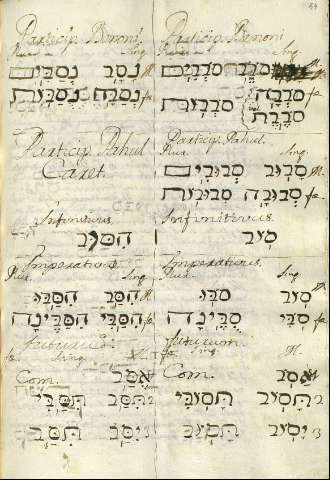 Particip. Benoni
Plur. Sing.
נָסָב נְסַבִּים
נְסַבָּה נְסַבּוֹת
Particip. Pahul
Caret.
Infinitivus
הִסּוֹב
Imperativus
Plur. Sing.
הִסַּב הִסַּבּוּ
הִסַּבִּי הִסַּבֶּינָה
Futurum
Sing.
Com.
אֶסַּב
תִּסַּב תִּסַּבִּי 2
יִסַּב תִּסַּב
Particip. Benoni
Sing.
סֹבְבִים M.
סֹבְבָה סֹבְבוֹת fe.
סֹבֶבֶת
Particip. Pahul.
Plur. Sing.
סָבוּב סְבוּבִים M.
סְבוּבָה סְבוּבוֹת fe.
Infinitivus.
סוֹב
Imperativus.
Plur. Sing.
סוֹב סֹבּוּ M.
סֹבִּי סֻבֶּינָה fe.
Futurum
fe. Sing. M.
Com.
אָסֹב
תָּסוֹב תָּסוֹבִּי 2
יָסוֹב תָּסוֹב 3